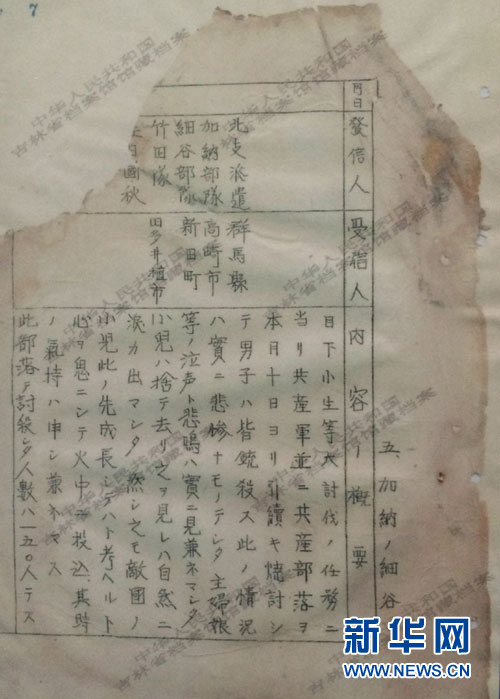 7
五、加納ノ細谷
月日
發信人
受信人
内容ノ概要
北支派遣
加納部隊
細谷部隊
竹田隊
田國秋
群馬縣
高崎市
新田町
田多井植市
目下小生等大討伐ノ任務ニ
当リ共産軍並ニ共産部落ヲ
本月十日ヨリ引續キ燒討シ
テ男子ハ皆銃殺ス此ノ情況
ハ實ニ悲惨ナモノデシタ主婦娘
等ノ泣声ト悲鳴ハ實ニ見兼ネマシタ
小児ハ捨テ去リ之ヲ見レハ自然ニ
淚カ出マシタ 然シ之モ敵國ノ
小児此ノ先成長シテハト考ヘルト
心ヲ息ニシテ火中ニ投込ム其時
ノ氣持ハ申シ兼ネマス
此部落デ討殺シタ人数ハ一五〇人テス
中华人民共和国
吉林省档案馆馆藏档案
中华人民共和国
吉林省档案馆馆藏档案
新华网
WWW.NEWS.CN